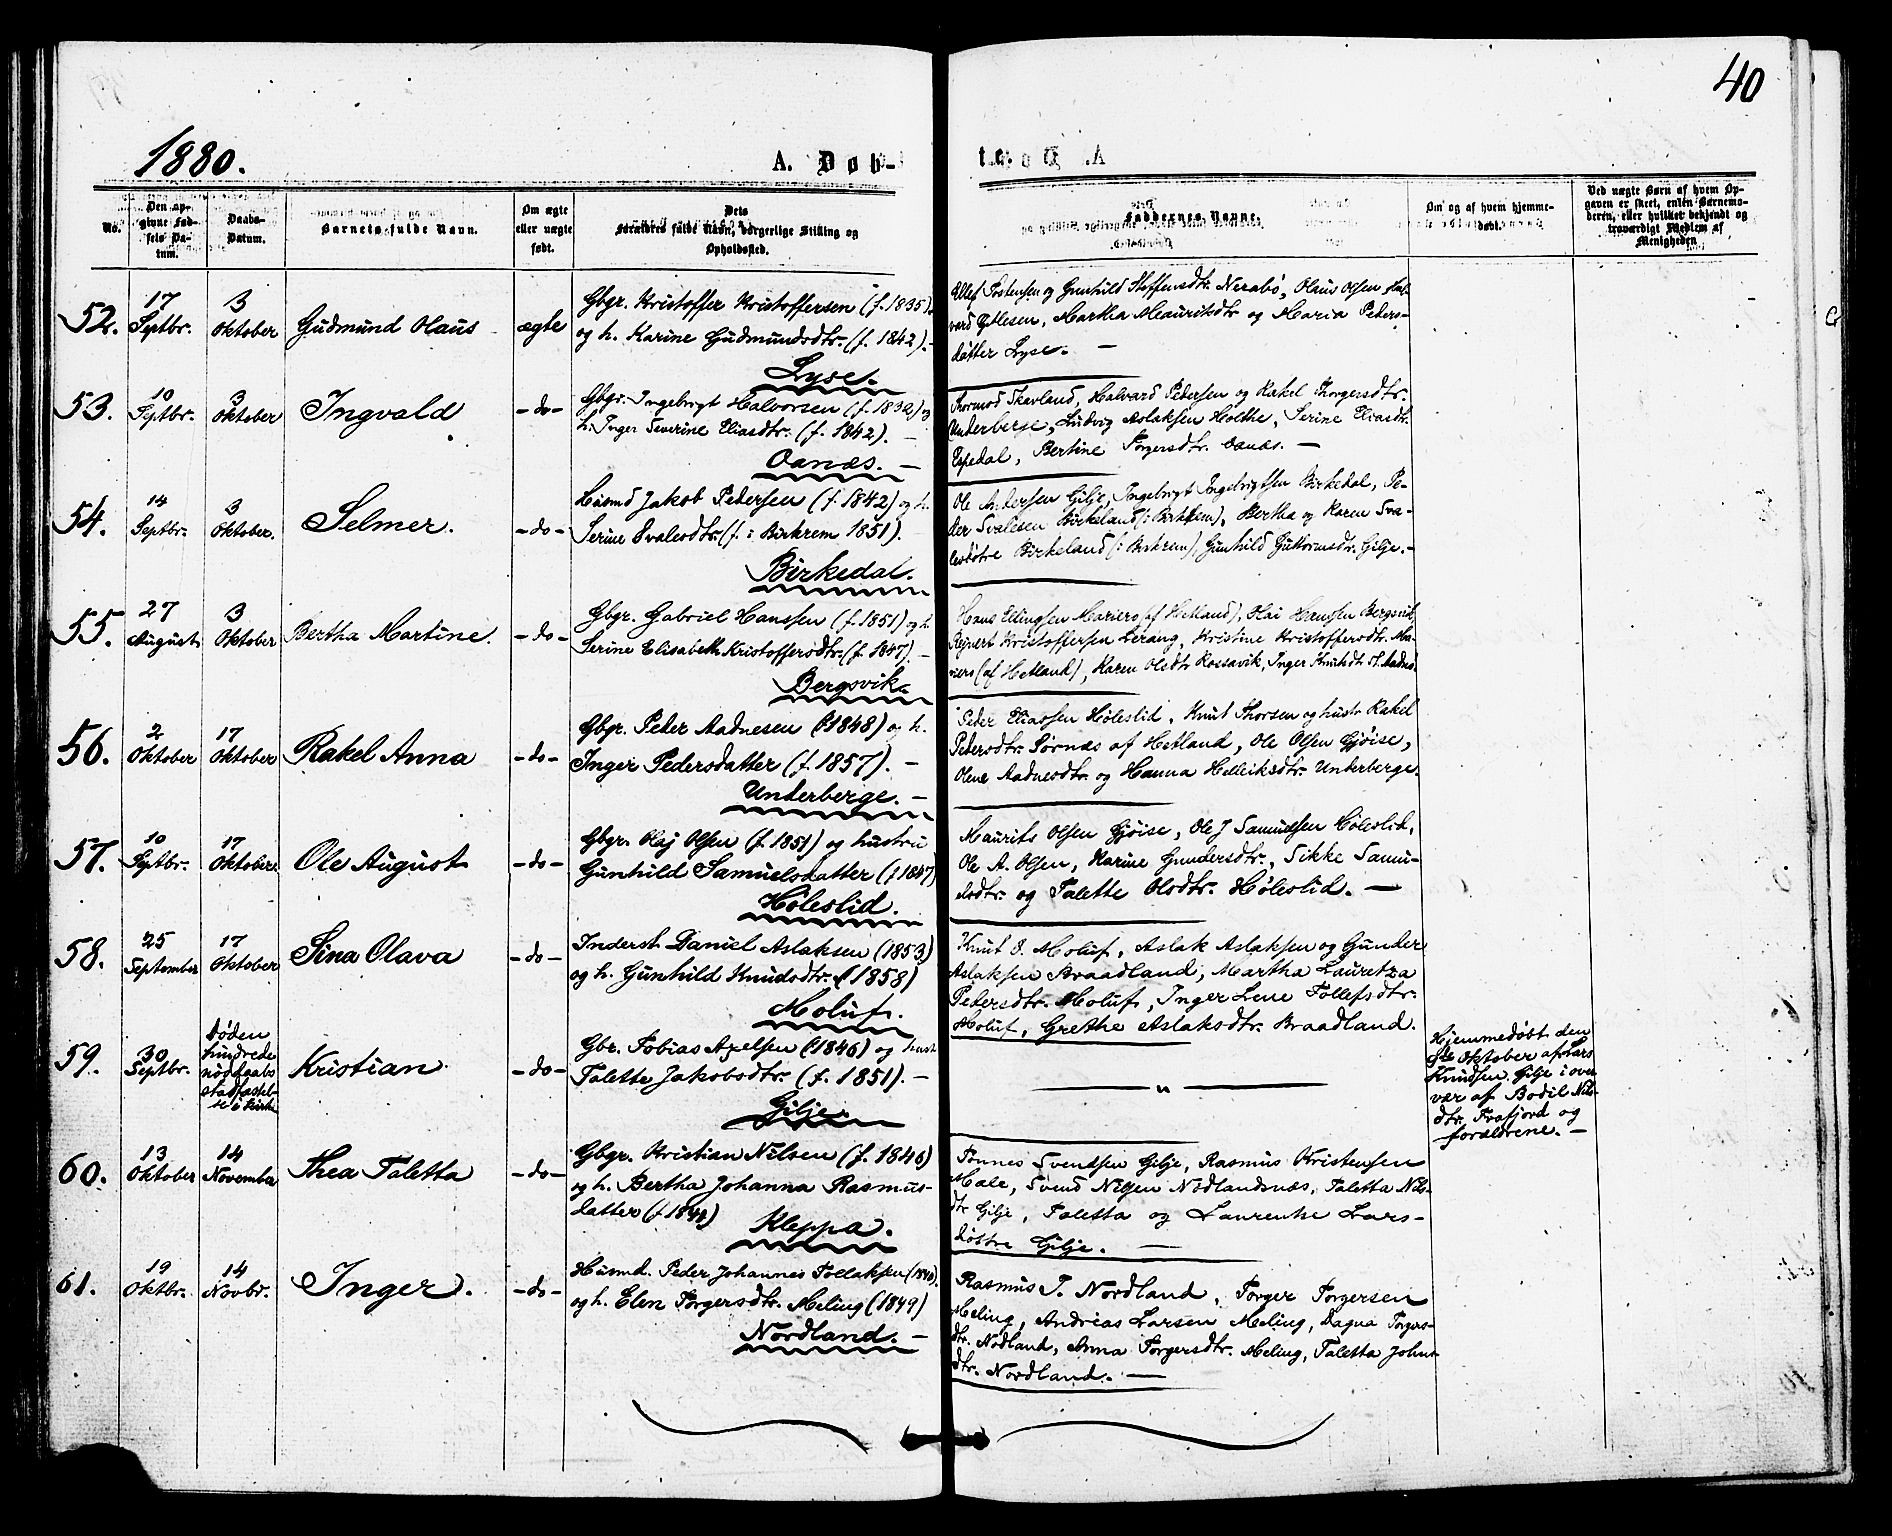 40
1880.
A. Døb-
te.
No.
Den op-
givne Fød-
sels Da-
tum.
Daabs-
Datum.
Barnets fulde Navn.
Om ægte
eller uægte
født.
Dets
Forældres fulde Navn, borgerlige Stilling og
Opholdssted.
Faddernes Navne.
Om og af hvem hjemme-
døbt.
Ved uægte Børn af hvem Op-
gaven er skeet, enten Barnemo-
deren, eller hvilket bekjendt og
troværdigt Medlem af
Menigheden
52.
17
Septbr.
3
Oktober
Gudmund Olaus
ægte
Gbgr. Kristoffer Kristoffersen (f. 1835)
og h. Karine Gudmundsdtr. (f. 1842). -
Lyse.
Gunhild Steffensdtr. Nerabø, Olaus Olsen Hal-
vard Martha Mauritsdtr og Maria Peders-
datter Lyse. —
53.
10
Septbr.
3
Oktober
Ingvald
- do -
Gbgr. Ingebrigt Halvorsen (f. 1832) og
h. Inger Severine Eliasdtr. (f. 1842). -
Oanæs. —
Thormod Skavland, Halvard Pedersen og Rakel Thorgersdtr.
Underberge, Ludvig Aslaksen Holthe, Serine Eliasdtr.
Espedal, Bertine Torgersdtr. Oanæs. —
54.
14
Septbr.
3
Oktober.
Selmer.
- do -
Husmd Jakob Pedersen (f. 1842) og h.
Serine Svalesdtr. (f. i Birkrem 1851).
Birkedal.
Ole Andersen Gilje, Ingebrigt Ingebrigtsen Birkedal, Pe-
der Svalesen Birkeland (i Birkrem), Bertha og Karen Sva-
lesdøtre Birkeland (i Birkrem), Gunhild Guttormsdtr. Gilje. -
55.
27
August
3
Oktober
Bertha Martine.
- do -
Gbgr. Gabriel Hanssen (f. 1851) og h
Serine Elisabeth Kristoffersdtr. (f. 1847). -
Bergsvik.
Hans Ellingsen Mariero (af Hetland), Olai Hanssen Bergsvik,
Rejnert Kristoffersen Lerang, Kristine Kristoffersdtr. Ma-
riero (af Hetland), Karen Olsdtr Rossavik, Inger Knutsdtr
56.
2
Oktober
17
Oktober
Rakel Anna
- do -
Gbgr. Peder Aadnesen (f 1848) og h.
Inger Pedersdatter (f. 1857). —
Underberge. —
Peder Eliassen Høleslid, Knut Thorsen og hustr. Rakel
Pedersdtr. Sørnæs af Hetland, Ole Olsen Gjøise,
Olene Aadnesdtr. og Hanna Helleiksdtr. Underberge.
57.
10
Septbr.
17
Oktober.
Ole August
- do -
Gbgr. Olaj Olsen (f. 1851) og hustru
Gunhild Samuelsdatter (f 1847)
Høleslid.
Maurits Olsen Gjøise, Ole J Samuelsen Høleslid,
Ole A. Olsen, Karine Gundersdtr., Sikke Samu-
elsdtr. og Talette Olsdtr. Høleslid. —
58.
25
September
17
Oktober
Sina Olava
- do -
Inderst. Daniel Aslaksen (1853)
og h. Gunhild Knudsdtr. (1858)
Moluf.
Knut O. Moluf, Aslak Aslaksen og Gunder
Aslaksen Braadland, Martha Lauretza
Pedersdtr. Moluf, Inger Lene Tollefsdtr.
Moluf, Grethe Aslaksdtr. Braadland.
59.
30
Septbr.
Døden
hindrede
nøddaabs
stadfæstel-
se i kirke
Kristian
- do -
Gbr. Tobias Axelsen (1846) og hust
Talette Jakobsdtr. (f. 1851). —
Gilje.
— „ —
Hjemmedøbt den
8de Oktober af Lars
Knudsen Gilje i over
vær af Bodil Nils-
dtr. Frafjord og
forældrene. —
60.
13
Oktober
14
November
Thea Taletta
- do -
Gbgr. Kristian Nilsen (f. 1846)
og h. Bertha Johanna Rasmus-
datter (f 1844)
Kleppa.
Tønnes Svendsen Gilje, Rasmus Kristensen
Hale, Svend Nilsen Nødlandsnæs, Taletta Nils-
dtr Gilje, Taletta og Laurentse Lars-
døtre Gilje. —
61.
19
Oktbr.
14
Novbr.
Inger.
- do -
Husmd. Peder Johannes Tollaksen (1840).
og h. Elen Torgersdtr. Meling (1849)
Nordland. —
Rasmus T. Nordland, Torger Torgersen
Meling, Andreas Larsen Meling, Dagna Torgers-
dtr. Nodland, Anna Torgersdtr. Meling, Taletta Johns-
dtr. Nordland. —